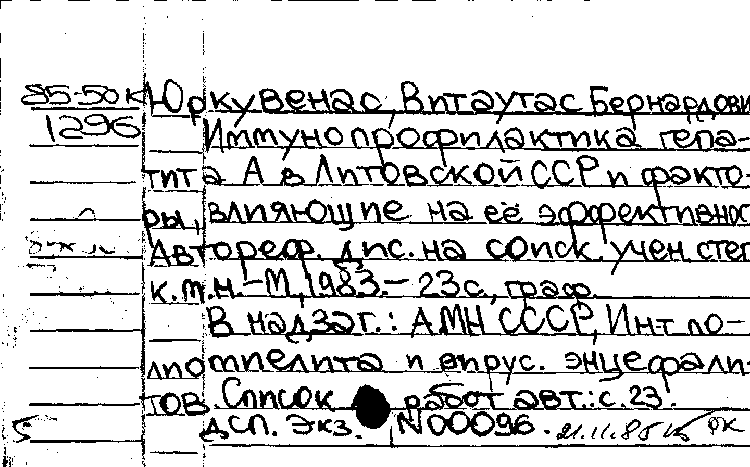 85-50к Юркувенас, Витаутас Бернардови
1296 Иммунопрофилактика гепа-
тита А в Литовской ССР и факто-
ры, влияющие на её эффективнос
Автореф. дис. на соиск. учен. степ
к.м.н. -М., 1983. - 23 с., граф.
В надзаг.: АМН СССР, Ин-т по-
лиомиелита и вирус. энцефали-
тов. Список работ авт.: с. 23.
ДСП. Экз. N00096. 21.11.85